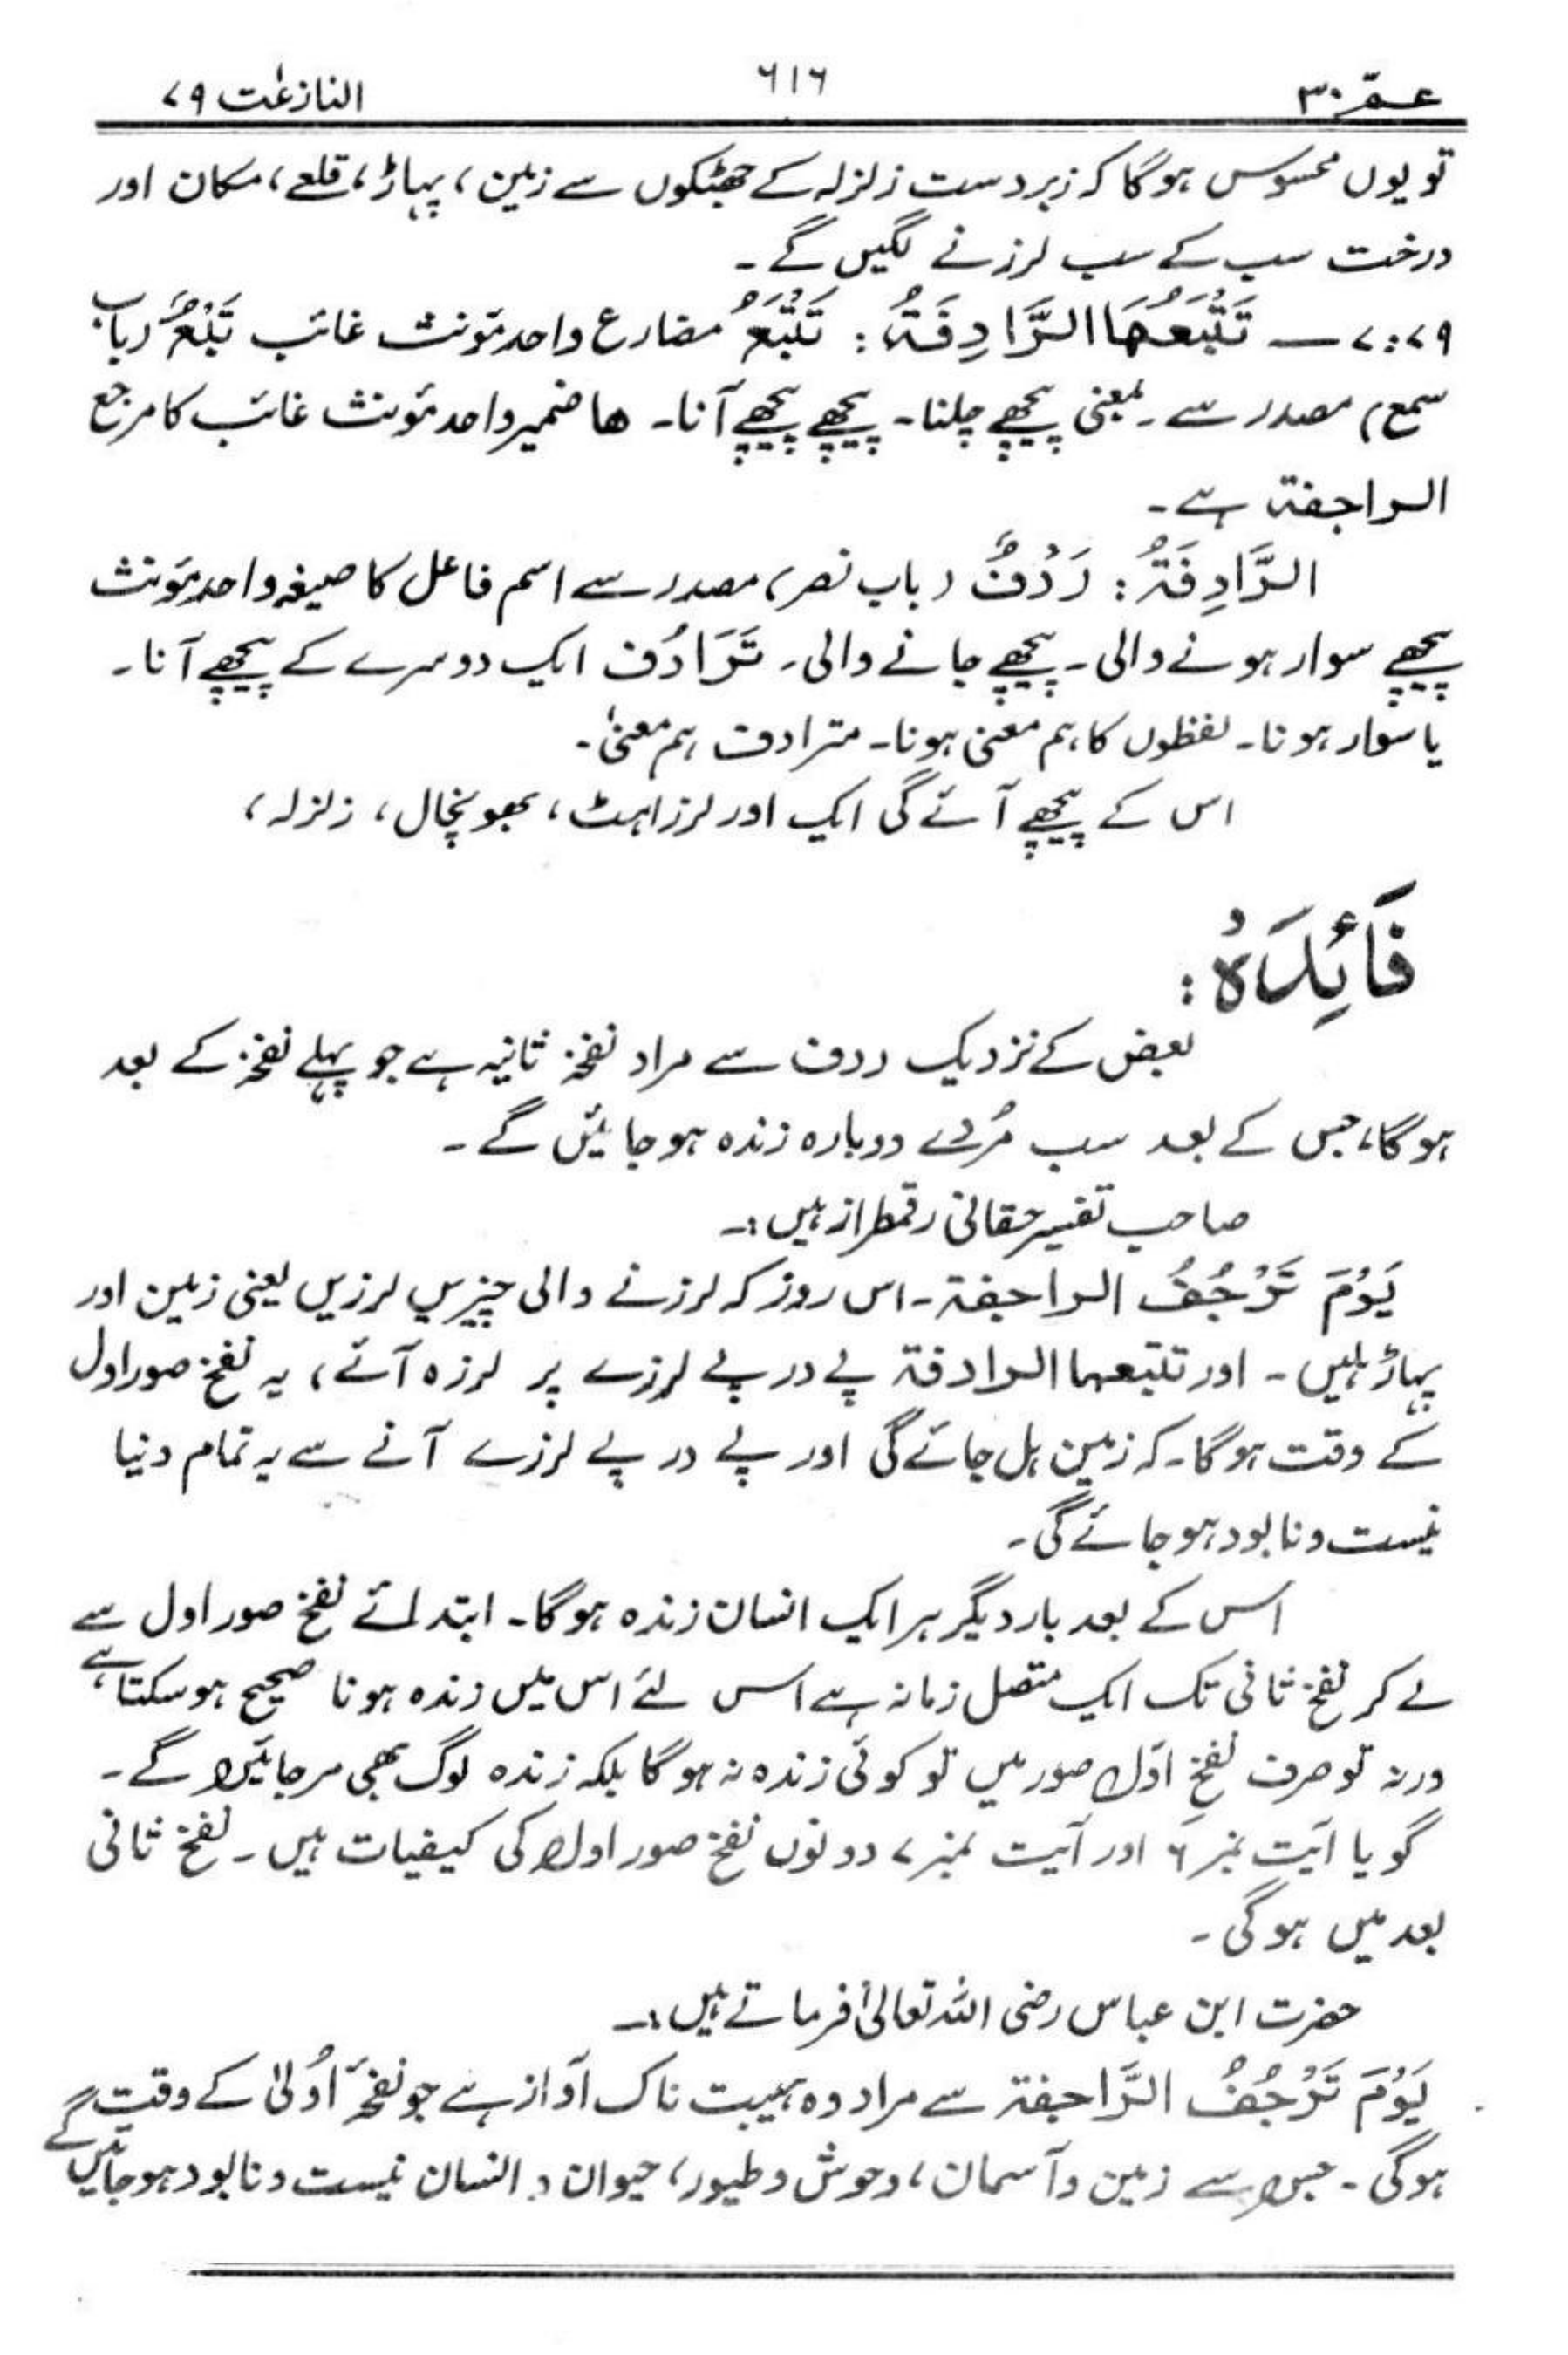 عمّ ۳۰ ۶۱۶ النازعٰت ۷۹
تو یوں محسوس ہوگا کہ زبردست زلزلہ کے جھٹکوں سے زمین، پہاڑ، قلعے، مکان اور
درخت سب کے سب لرزنے لگیں گے۔
۷۹:۷ — تَتْبَعُهَا الرَّادِفَةُ: تَتْبَعُ مضارع واحد مؤنث غائب تَبَعٌ (باب
سمع) مصدر سے۔ بمعنی پیچھے چلنا۔ پیچھے پیچھے آنا۔ ھا ضمیر واحد مؤنث غائب کا مرجع
الراجفۃ ہے۔
الرَّادِفَةُ: رَدْفٌ (باب نصر) مصدر سے اسم فاعل کا صیغہ واحد مؤنث
پیچھے سوار ہونے والی۔ پیچھے جانے والی۔ تَرَادُف ایک دوسرے کے پیچھے آنا۔
یا سوار ہونا۔ لفظوں کا ہم معنی ہونا۔ مترادف ہم معنیٰ۔
اس کے پیچھے آئے گی ایک اور لرزاہٹ، بھونچال، زلزلہ،
فَائِدَہُ:
بعض کے نزدیک ردف سے مراد نفخۂ ثانیہ ہے جو پہلے نفخہ کے بعد
ہوگا، جس کے بعد سب مُردے دوبارہ زندہ ہو جائیں گے۔
صاحب تفسیر حقانی رقمطراز ہیں:۔
يَوْمَ تَرْجُفُ الراجفۃ۔ اس روز کہ لرزنے والی چیزیں لرزیں یعنی زمین اور
پہاڑ ہلیں۔ اور تتبعہا الرادفۃ پے در پے لرزے پر لرزہ آئے، یہ نفخ صور اول
کے وقت ہوگا۔ کہ زمین ہل جائے گی اور پے در پے لرزے آنے سے یہ تمام دنیا
نیست و نابود ہو جائے گی۔
اس کے بعد بار دیگر ہر ایک انسان زندہ ہوگا۔ ابتدائے نفخ صور اول سے
لے کر نفخ ثانی تک ایک متصل زمانہ ہے اس لئے اس میں زندہ ہونا صحیح ہو سکتا ہے،
ورنہ تو صرف نفخِ اوّل صور میں تو کوئی زندہ نہ ہوگا بلکہ زندہ لوگ بھی مر جائیں گے۔
گویا آیت نمبر ۶ اور آیت نمبر ۷ دونوں نفخ صور اول کی کیفیات ہیں۔ نفخ ثانی
بعد میں ہوگی۔
حضرت ابن عباس رضی اللہ تعالیٰ فرماتے ہیں:۔
يَوْمَ تَرْجُفُ الرَّاجفۃ سے مراد وہ ہیبت ناک آواز ہے جو نفخۂ اُولیٰ کے وقت
ہوگی۔ جس سے زمین و آسمان، وحوش و طیور، حیوان و انسان نیست و نابود ہو جائیں گے